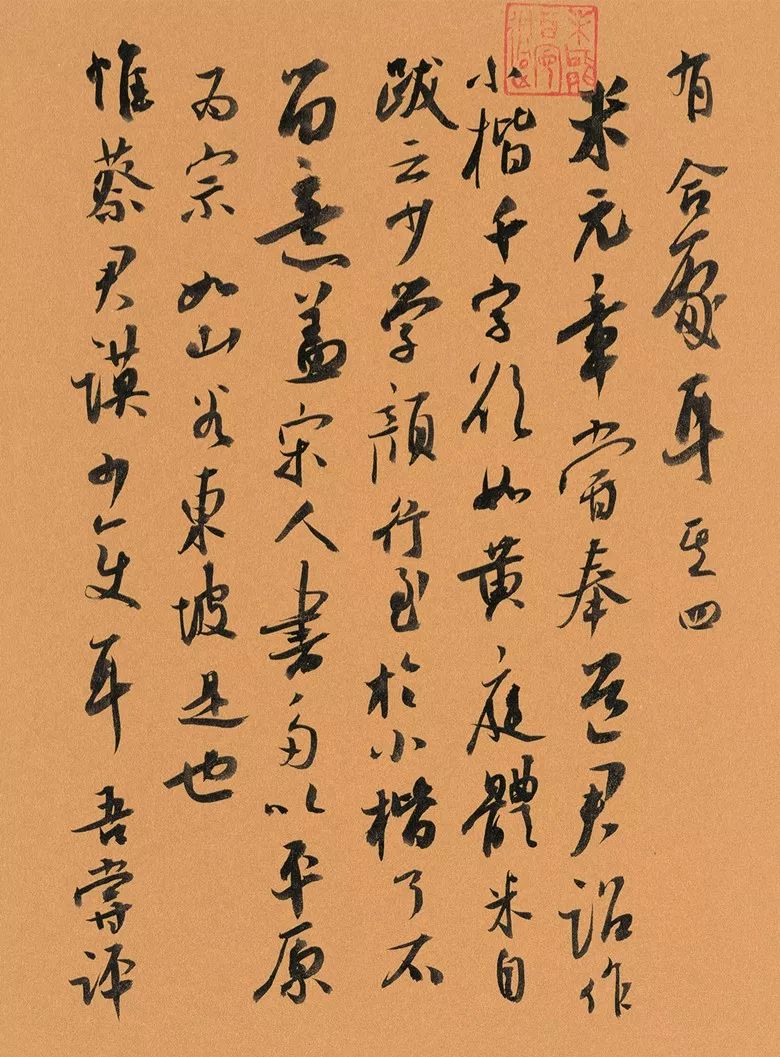 有合處耳其四
米元章嘗奉道君詔作
小楷千字欲如黄庭體米自
跋云少学顔行至於小楷了不
留意盖宋人書多以平原
为宗如山谷東坡是也
惟蔡君謨少变耳吾嘗评